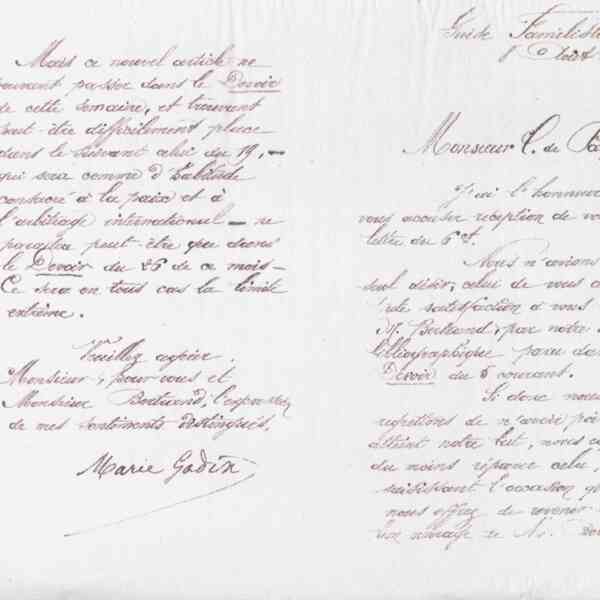 Mais ce nouvel article ne
pouvant passer dans le Devoir
de cette semaine, et trouvant
peut-être difficilement place
dans le suivant celui du 19, —
qui sera comme d'habitude
consacré à la paix et à
l'arbitrage international — ne
paraîtra peut-être que dans
le Devoir du 26 de ce mois —
Ce sera en tous cas la limite
extrême.
Veuillez agréer,
Monsieur, pour vous et
Monsieur Bertrand, l'expression
de mes sentiments distingués.
Marie Godin
Guise Familist
Août
Monsieur C. de
J'ai l'honneur
vous accuser réception de vo
lettre du 6 ct.
Nous n'avions
seul désir; celui de vous d
satisfaction à vous
M. Bertrand, par notre
bibliographique paru da
Devoir du 5 courant.
Si donc nous
regrettons de n'avoir pas
atteint notre but, nous
du moins réparer cela,
saisissant l'occasion q
nous offrez de revenir
un ouvrage de M.